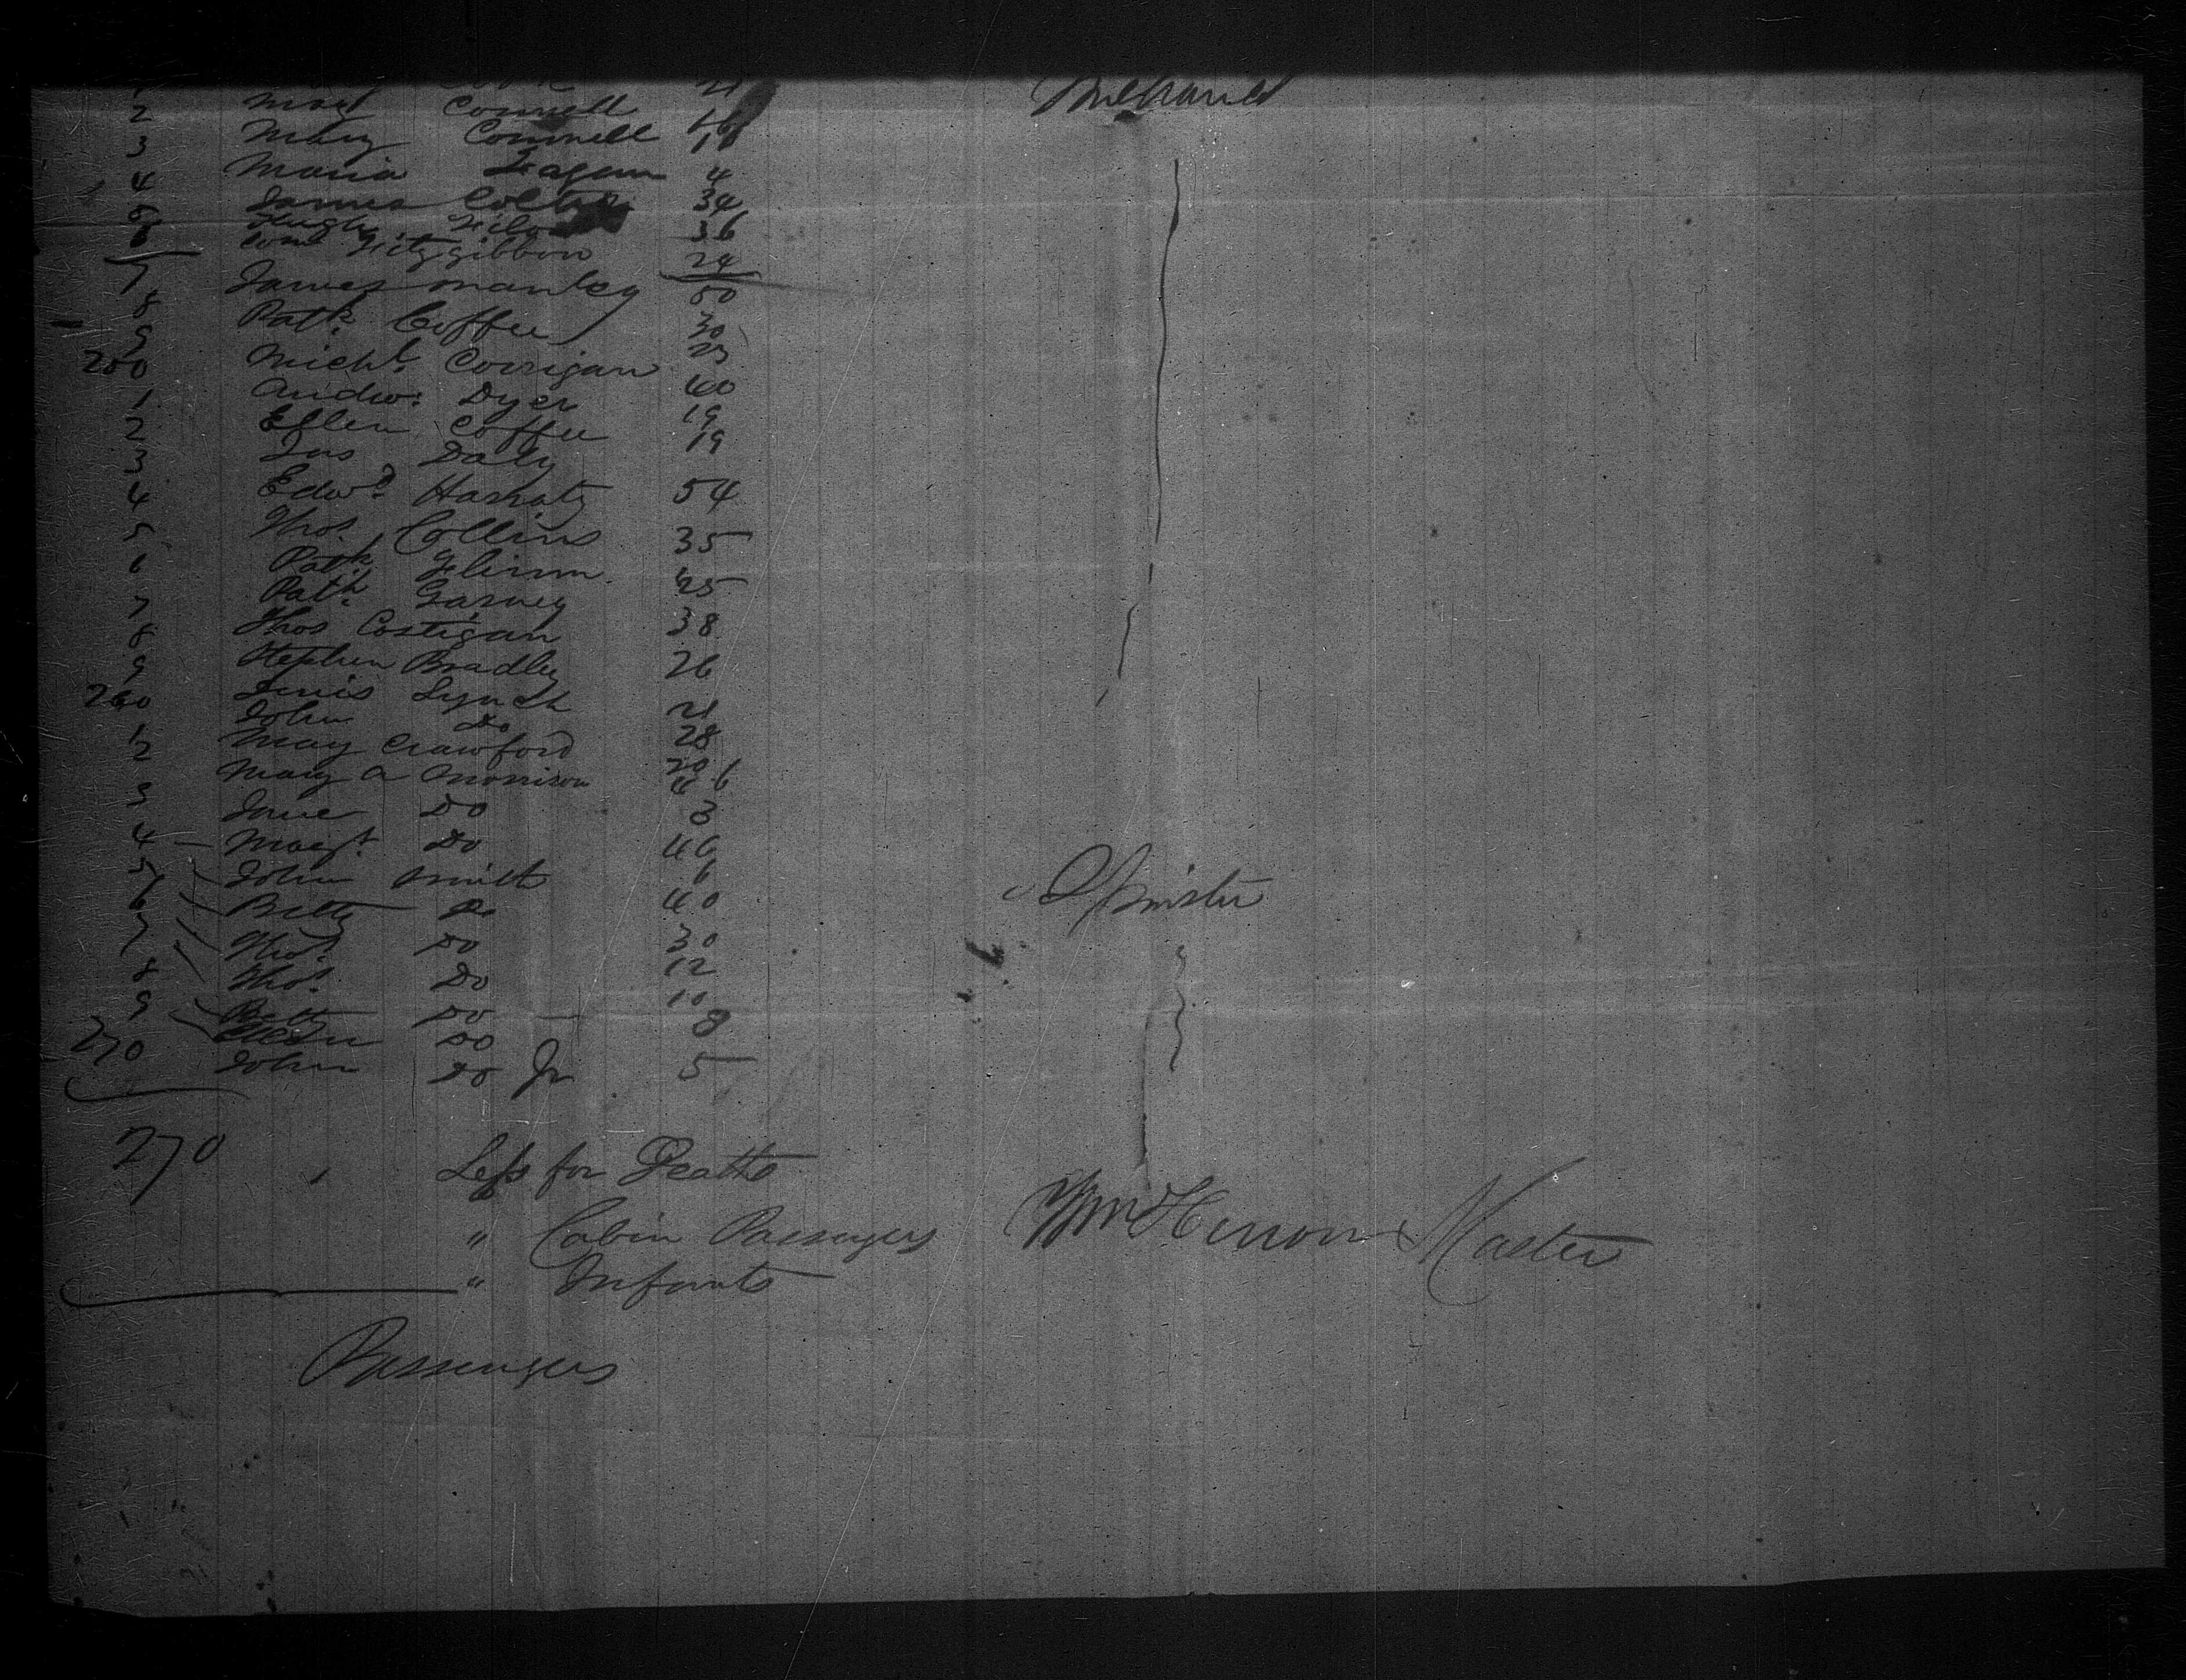 2 Mary Connell
3 Mary Connell
4 Maria Fagan 4
James 34
Hugh 36
Fitzgibbon 24
7 James Manley 50
8 Patk. Coffee 30
9
250 Michl. Corrigan 23
1 Andw: Dyer 40
2 Ellen Coffee 19
3 Jas Daly 19
4 Edwd. Hanraty 54
5 Thos. Collins 35
6 Patk. 25
7 Patk. Garvey
8 Thos Costigan 38
9 Stephen Bradley 26
260 Denis Lynch 21
John Do 28
1 May Crawford 20
2 Mary A Morrison
3 Jane Do 3
4 Margt. Do 46
5 John Smith 6
6 Betty Do 40
7 Thos. Do 30
8 Thos. Do 12
9 Betty Do 10
270 Do 8
John Do Jr 5
Mechanic
Spinster
270
Less for Deaths
" Cabin Passagers
" Infants
Wm Herron Master
Passengers